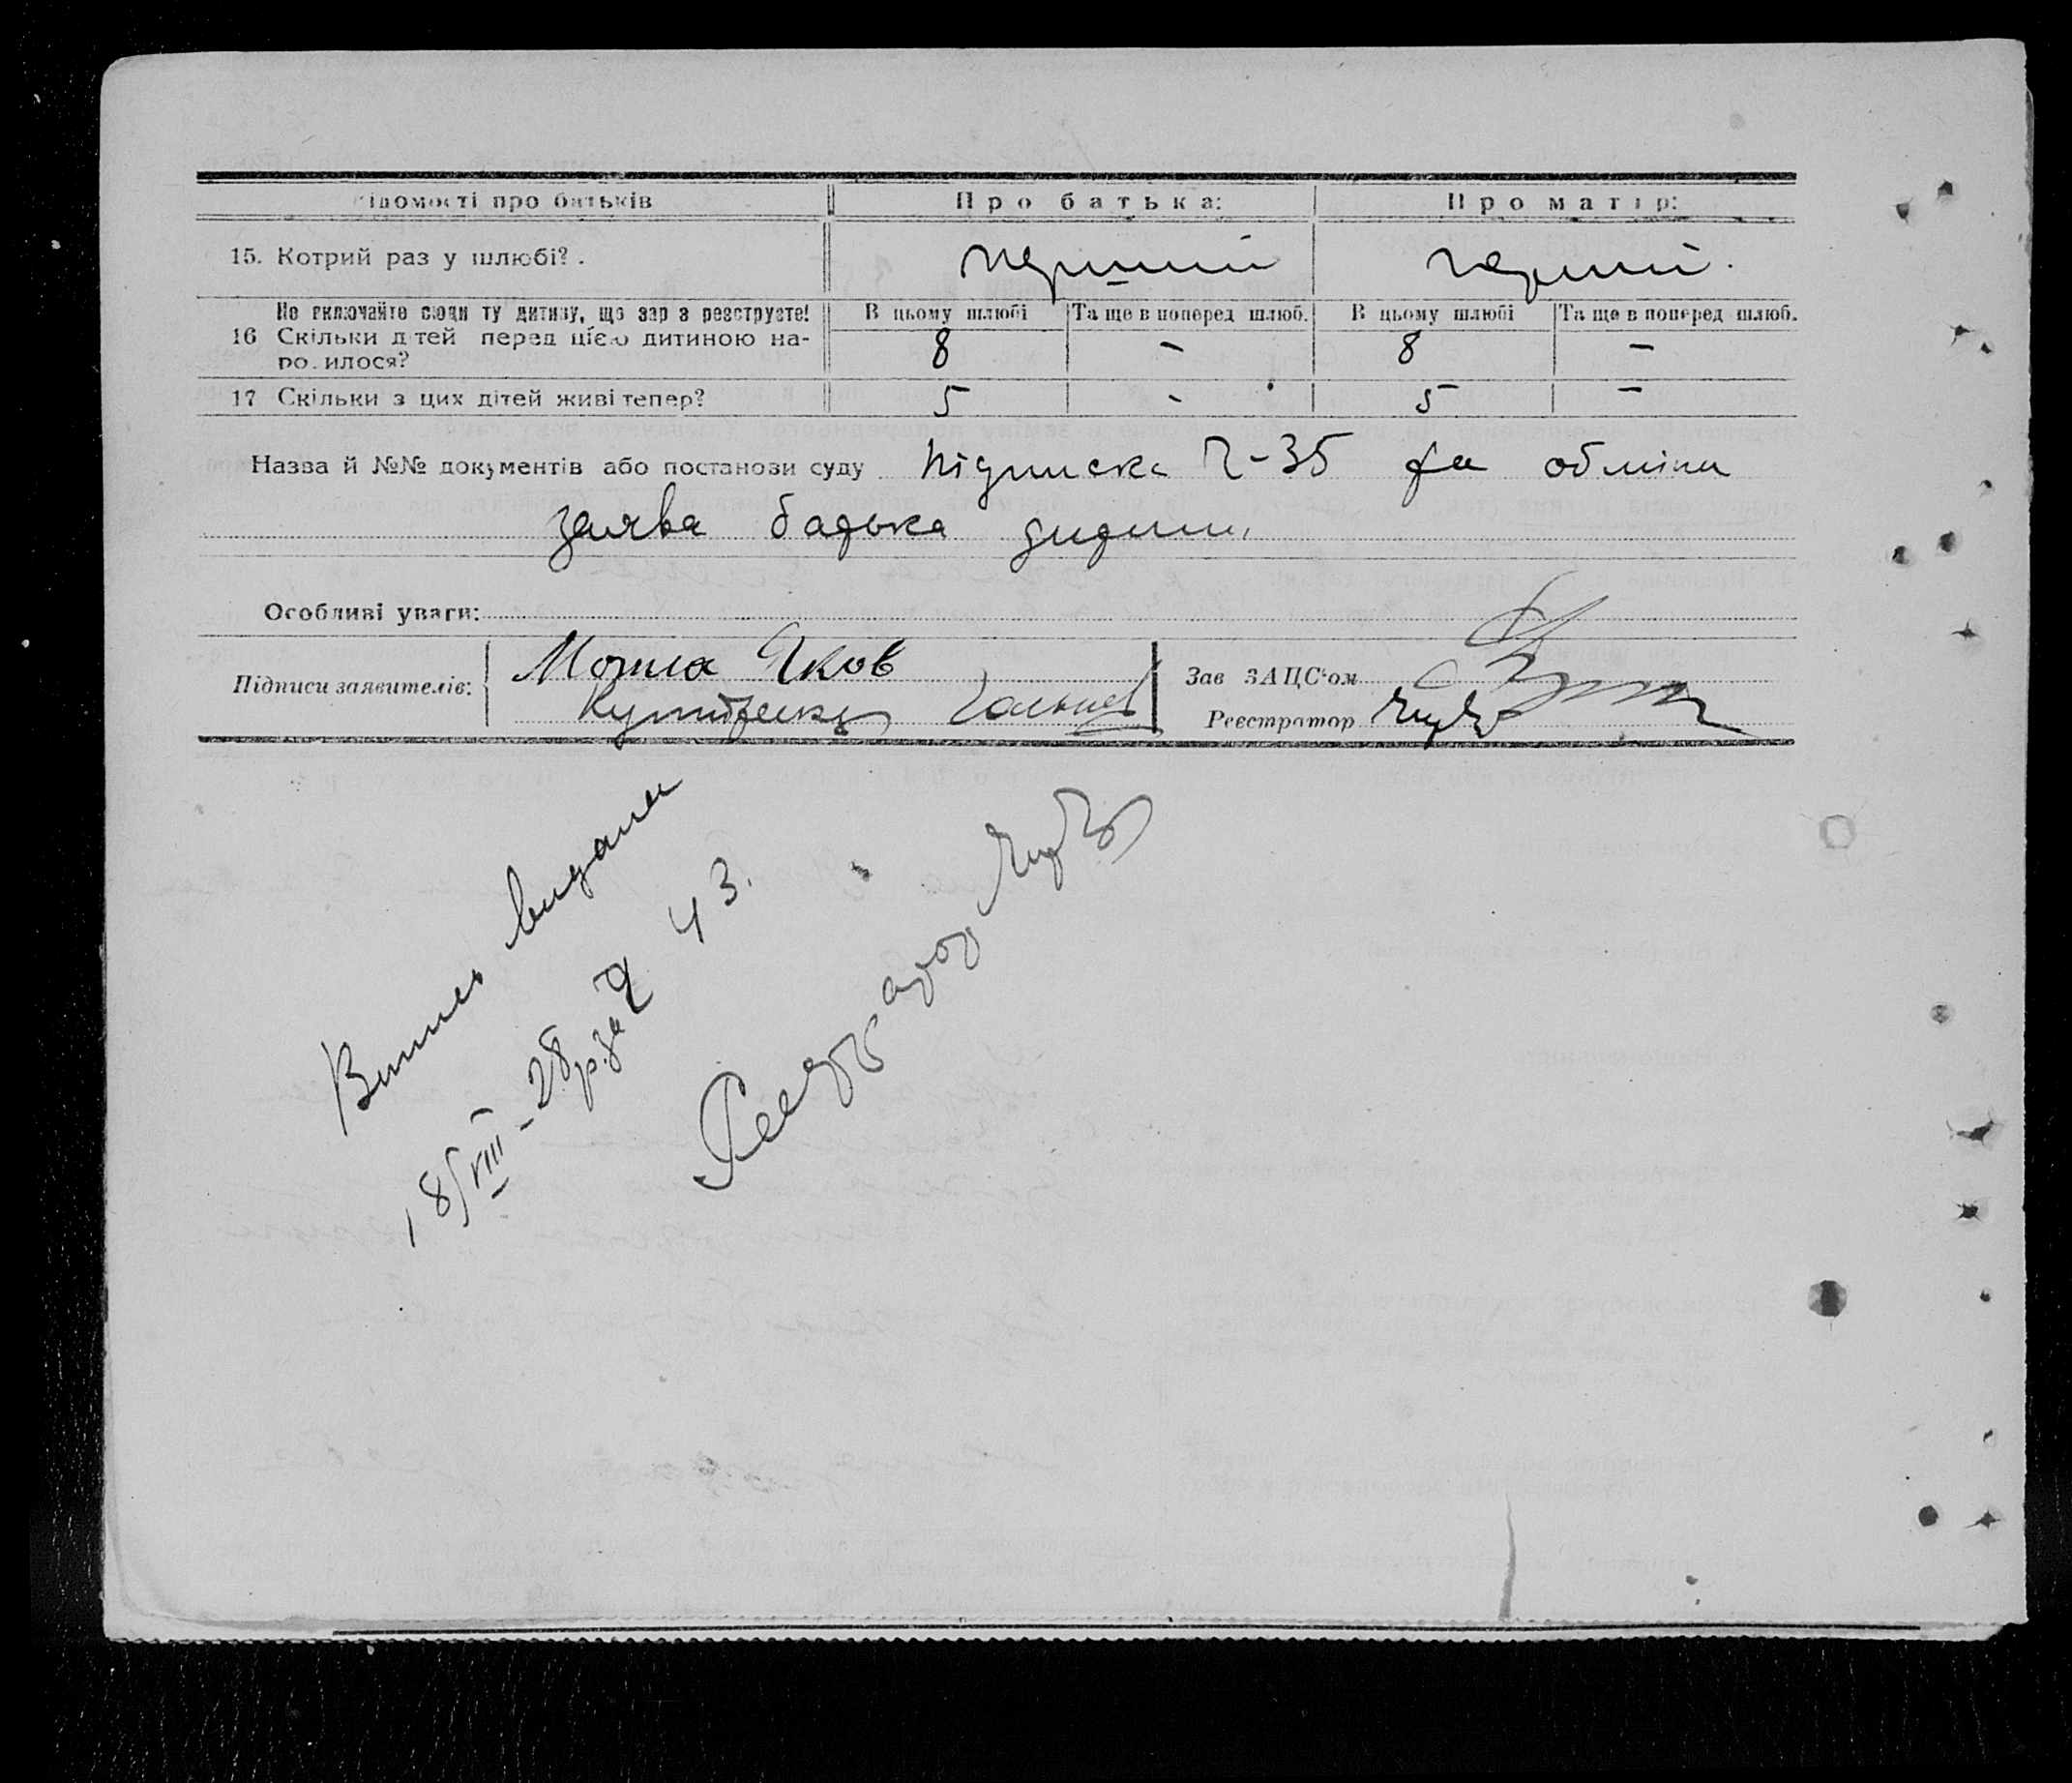 ідомості про батьків Про батька: Про матір:
15. Котрий раз у шлюбі? . перший перший.
Не включайте сюди ту дитину, що зар з реєструєте! В цьому шлюбі Та ще в поперед шлюб. В цьому шлюбі Та ще в поперед шлюб.
16 Скільки д тей перед цією дитиною на-
ро.илося? 8 - 8 -
17 Скільки з цих дітей живі тепер? 5 - 5 -
Назва й №№ документів або постанови суду Підписка Ч-35 та
заява батька дитини
Особливі уваги:
Підписи заявителів: Могила Яков
Зав ЗАЦС'ом
Реєстратор
Випись видана
18/VIII-28р. за Ч 43.
Реєстратор